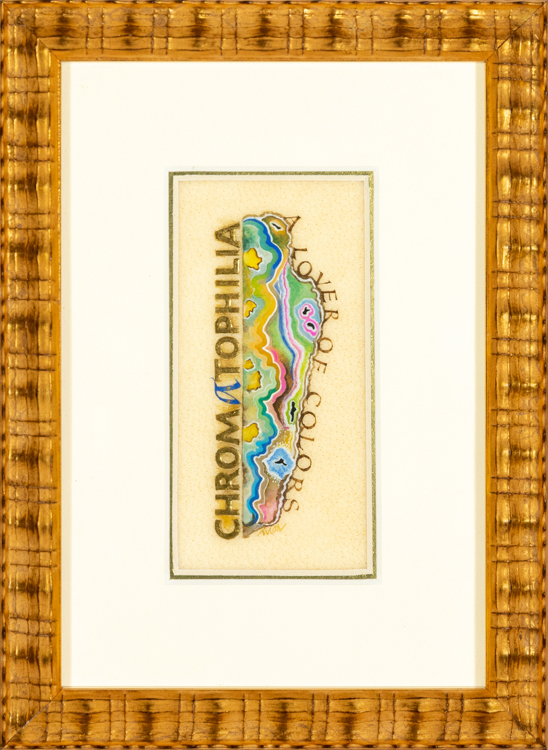 CHROMaTOPHILIA
A LOVER OF COLORS